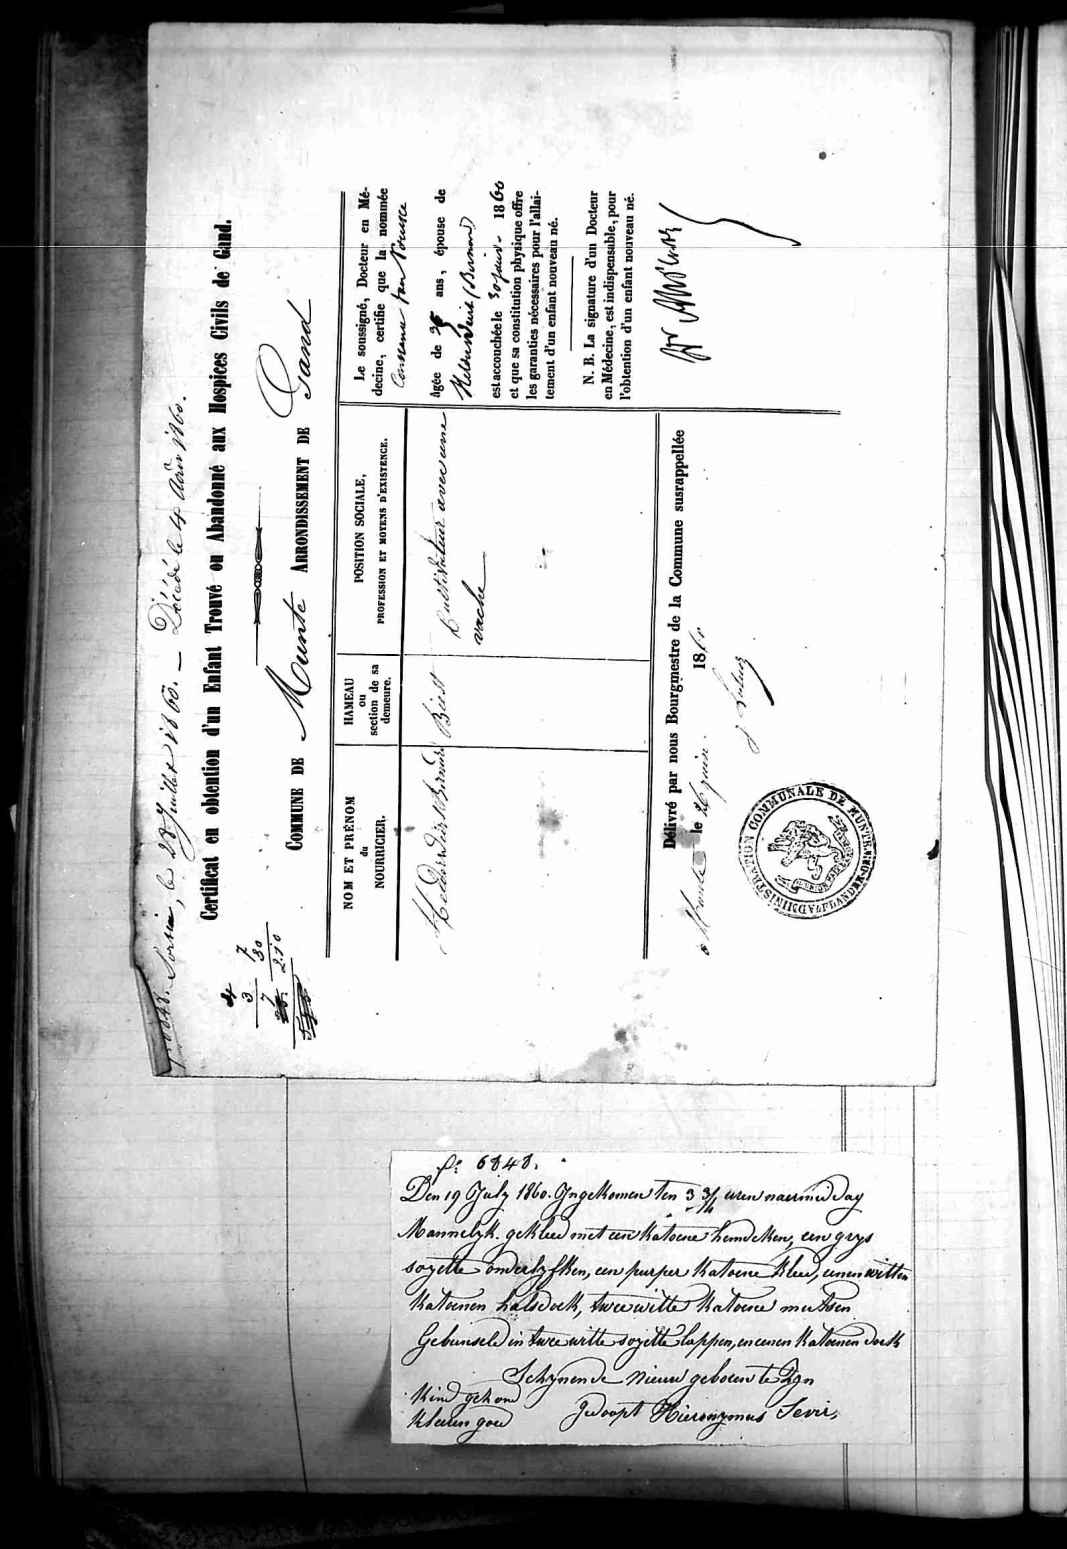 f° 6848. Sortie, le 28 Juillet 1860. — Décédé le 4 Août 1860.
Certificat en obtention d'un Enfant Trouvé ou Abandonné aux Hospices Civils de Gand.
COMMUNE DE Munte ARRONDISSEMENT DE Gand
4
3
7
7
30
2.10
NOM ET PRÉNOM
du
NOURRICIER.
HAMEAU
ou
section de sa
demeure.
POSITION SOCIALE,
PROFESSION ET MOYENS D'EXISTENCE.
Biest
Cultivateur avec une
vache
Le soussigné, Docteur en Mé-
decine, certifie que la nommée
âgée de 36 ans, épouse de
(Bernard)
est accouchée le 30 juin 1860
et que sa constitution physique offre
les garanties nécessaires pour l'allai-
tement d'un enfant nouveau né.
N. B. La signature d'un Docteur
en Médecine, est indispensable, pour
l'obtention d'un enfant nouveau né.
Délivré par nous Bourgmestre de la Commune susrappellée
à Munte le 26 juin 1860
ADMINISTRATION COMMUNALE DE MUNTE
f° 6848.
Den 19 July 1860. Ingekomen ten 3 3/4 uren naermiddag
Mannelyk. gekleed met een katoene hemdeken, een grys
sozette onderlyfken, een purper katoene kleed, eenen witten
katoenen halsdoek, twee witte katoene mutsen
Gebunseld in twee witte sozette lappen, en eenen katoenen doek
Schynende nieuw geboren te zyn
kind gezond
kleeren goed
Gedoopt Hieronymus Sevir,